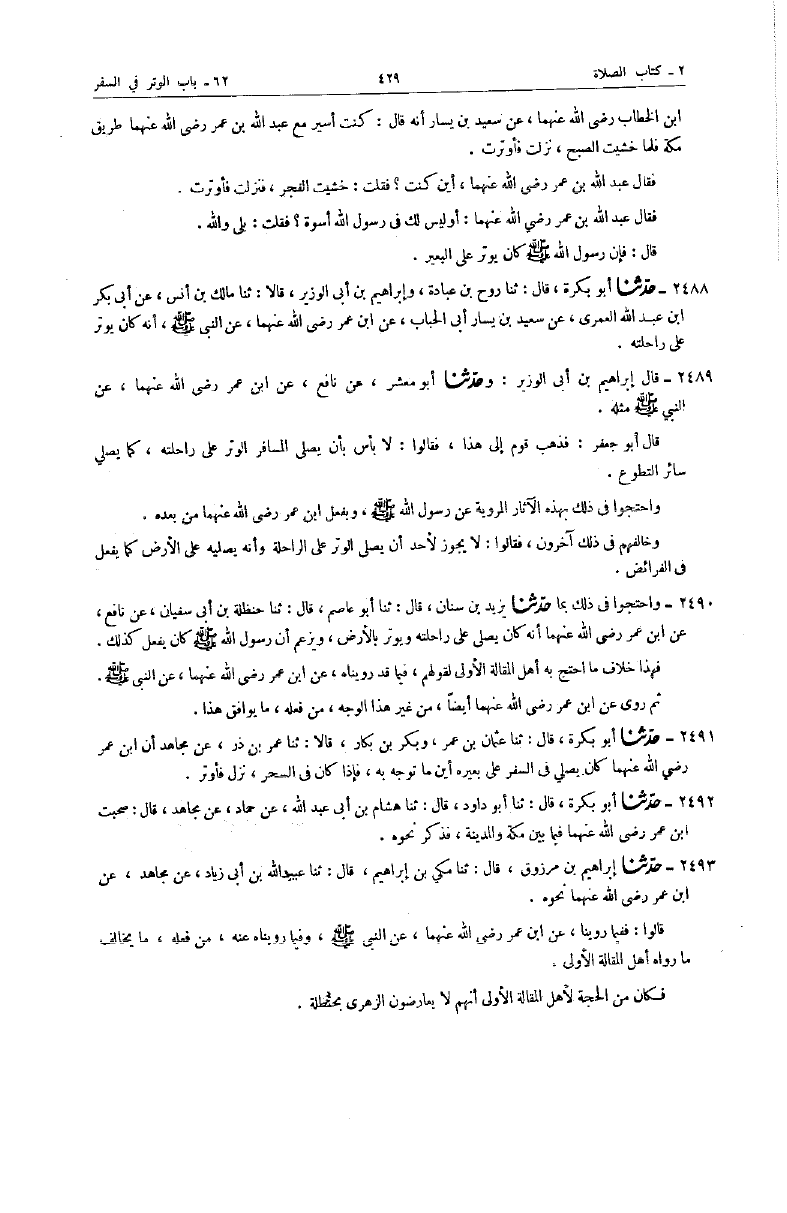 ٢ - كتاب الصلاة ٤٢٩ ٦٢ - باب الوتر في السفر
ابن الخطاب رضى الله عنهما ، عن سعيد بن يسار أنه قال : كنت أسير مع عبد الله بن عمر رضي الله عنهما طريق
مكة فلما خشيت الصبح ، نزلت فأوترت .
فقال عبد الله بن عمر رضي الله عنهما ، أين كنت ؟ فقلت : خشيت الفجر ، فنزلت فأوترت .
فقال عبد الله بن عمر رضي الله عنهما : أوليس لك فى رسول الله أسوة ؟ فقلت : بلى والله .
قال : فإن رسول الله ﷺ كان يوتر على البعير .
٢٤٨٨ - حدثنا أبو بكرة ، قال : ثنا روح بن عبادة ، وإبراهيم بن أبى الوزير ، قالا : ثنا مالك بن أنس ، عن أبى بكر
ابن عبد الله العمرى ، عن سعيد بن يسار أبى الحباب ، عن ابن عمر رضي الله عنهما ، عن النبي ﷺ ، أنه كان يوتر
على راحلته .
٢٤٨٩ - قال إبراهيم بن أبى الوزير : وحدثنا أبو معشر ، عن نافع ، عن ابن عمر رضي الله عنهما ، عن
النبي ﷺ مثله .
قال أبو جعفر : فذهب قوم إلى هذا ، فقالوا : لا بأس بأن يصلى المسافر الوتر على راحلته ، كما يصلي
سائر التطوع .
واحتجوا فى ذلك بهذه الآثار المروية عن رسول الله ﷺ ، وبفعل ابن عمر رضى الله عنهما من بعده .
وخالفهم فى ذلك آخرون ، فقالوا : لا يجوز لأحد أن يصلى الوتر على الراحلة وأنه يصليه على الأرض كما يفعل
فى الفرائض .
٢٤٩٠ - واحتجوا فى ذلك بما حدثنا يزيد بن سنان ، قال : ثنا أبو عاصم ، قال : ثنا حنظلة بن أبى سفيان ، عن نافع ،
عن ابن عمر رضى الله عنهما أنه كان يصلى على راحلته ويوتر بالأرض ، ويزعم أن رسول الله ﷺ كان يفعل كذلك .
فهذا خلاف ما احتج به أهل المقالة الأولى لقولهم ، فيما قد رويناه ، عن ابن عمر رضي الله عنهما ، عن النبي ﷺ .
ثم روى عن ابن عمر رضي الله عنهما أيضاً ، من غير هذا الوجه ، من فعله ، ما يوافق هذا .
٢٤٩١ - حدثنا أبو بكرة ، قال : ثنا عثمان بن عمر ، وبكر بن بكار ، قالا : ثنا عمر بن ذر ، عن مجاهد أن ابن عمر
رضي الله عنهما كان يصلي فى السفر على بعيره أين ما توجه به ، فإذا كان فى السحر ، نزل فأوتر .
٢٤٩٢ - حدثنا أبو بكرة ، قال : ثنا أبو داود ، قال : ثنا هشام بن أبى عبد الله ، عن حماد ، عن مجاهد ، قال : صحبت
ابن عمر رضي الله عنهما فيما بين مكة والمدينة ، فذكر نحوه .
٢٤٩٣ - حدثنا إبراهيم بن مرزوق ، قال : ثنا مكي بن إبراهيم ، قال : ثنا عبيدالله بن أبى زياد ، عن مجاهد ، عن
ابن عمر رضى الله عنهما نحوه .
قالوا : ففيما روينا ، عن ابن عمر رضي الله عنهما ، عن النبي ﷺ ، وفيما رويناه عنه ، من فعله ، ما يخالف
ما رواه أهل المقالة الأولى .
فكان من الحجة لأهل المقالة الأولى أنهم لا يعارضون الزهرى بحنظلة .